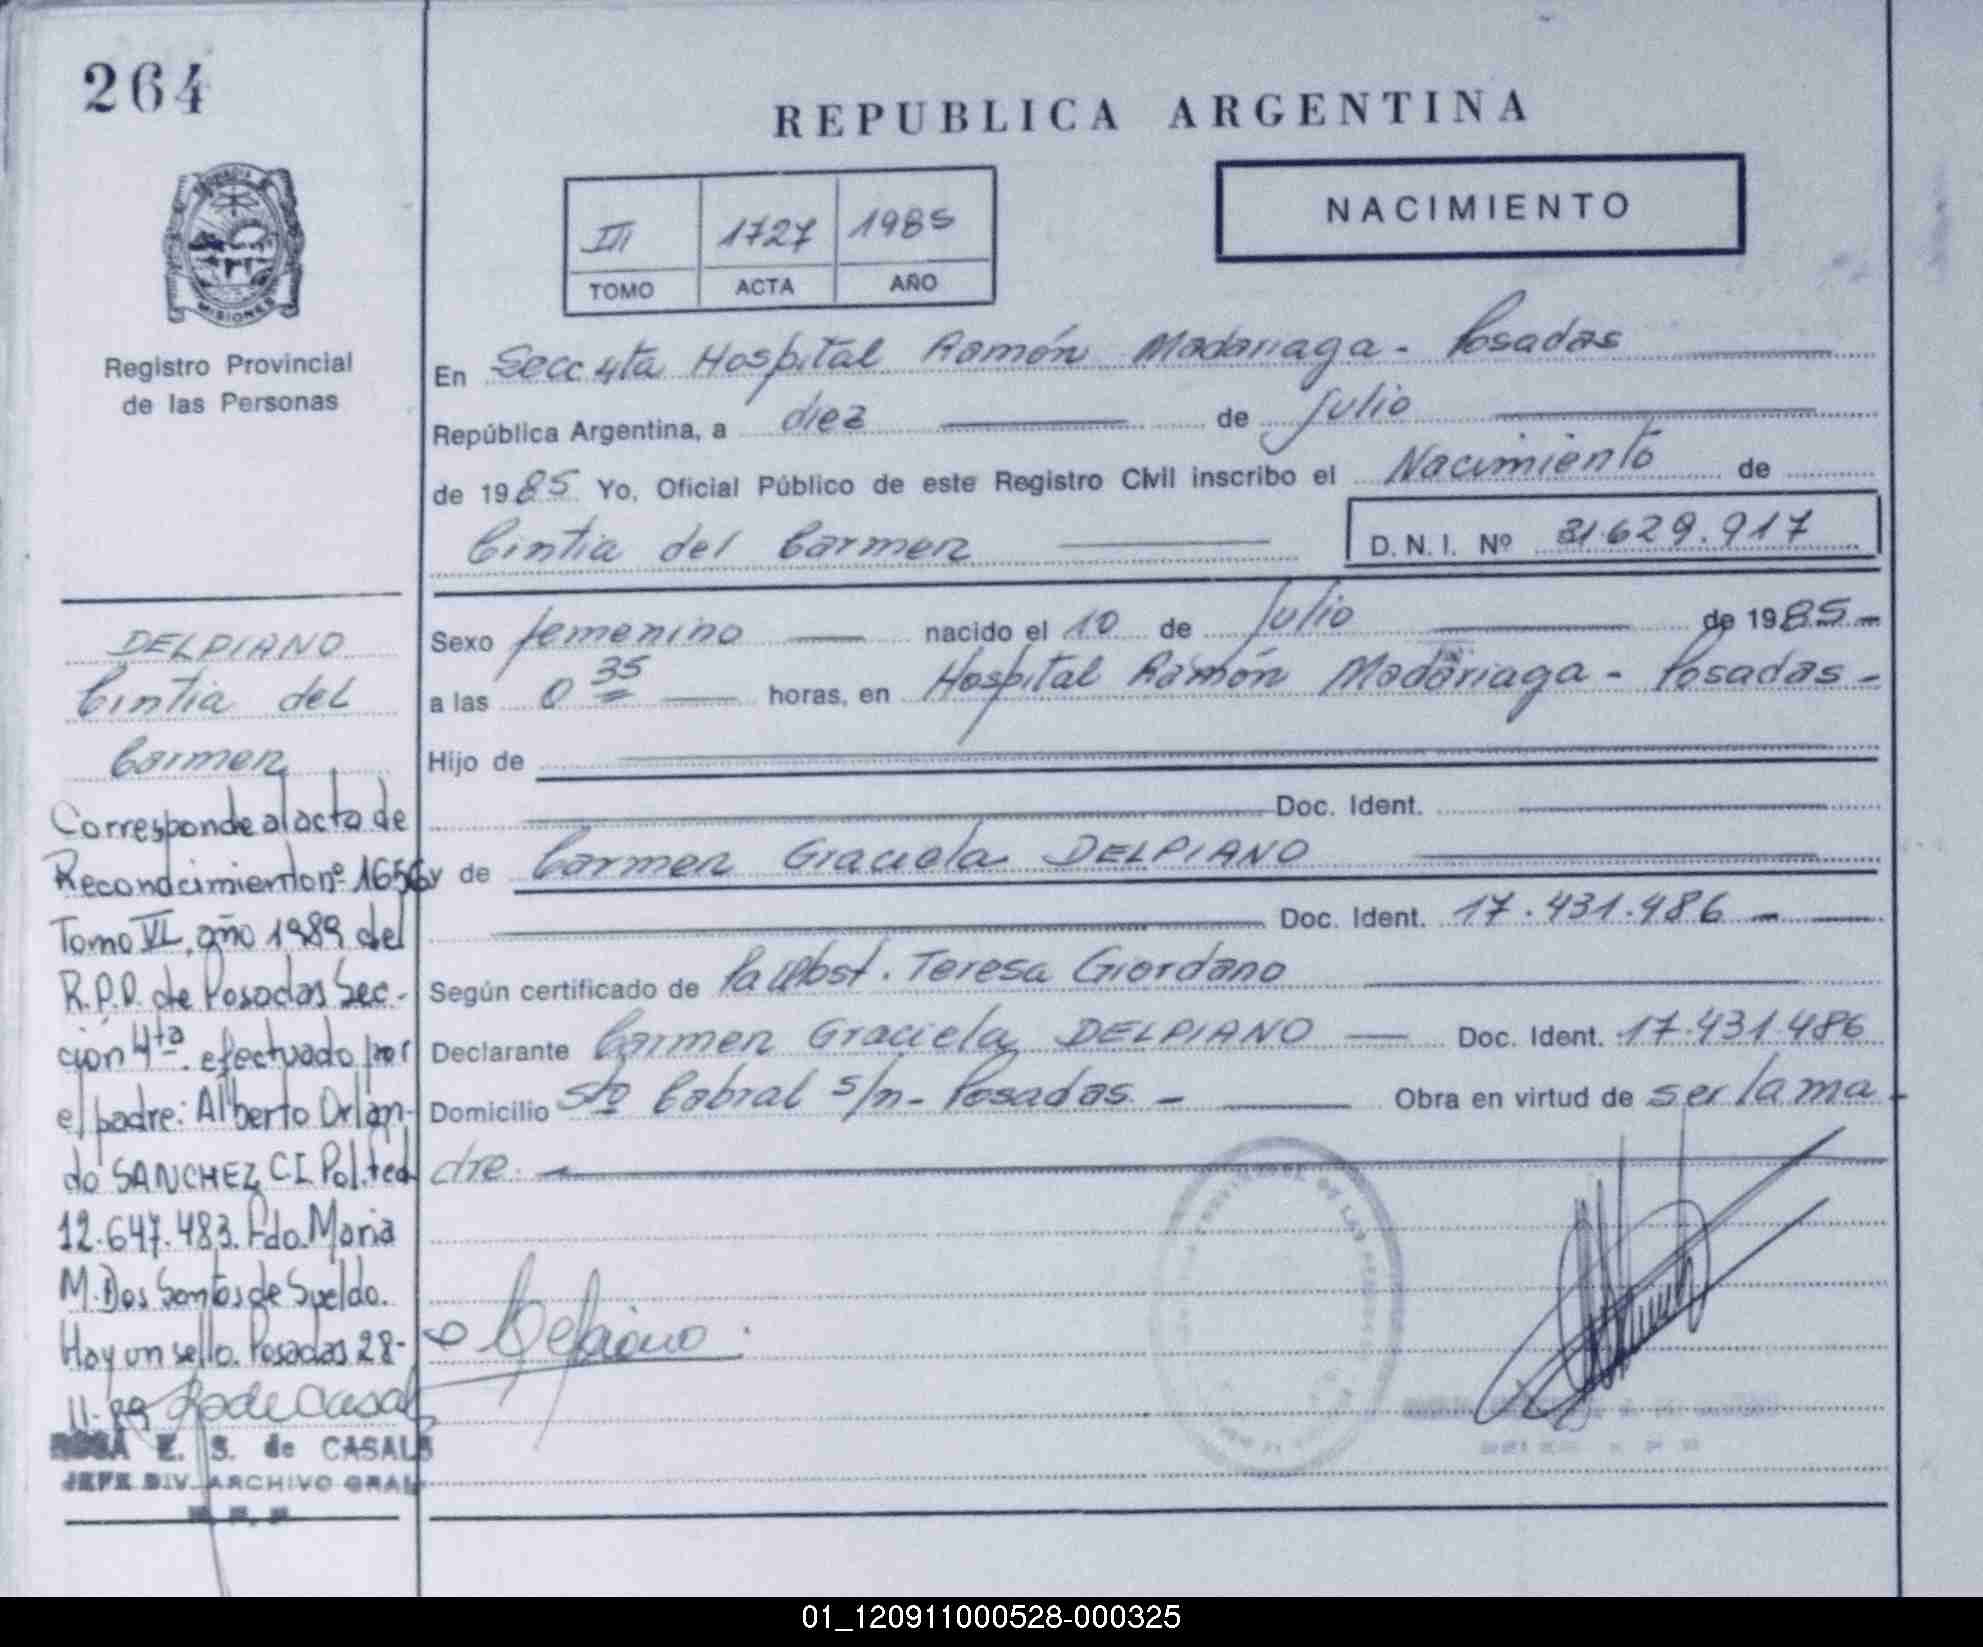 264
REPUBLICA ARGENTINA
III 1727 1985
TOMO ACTA AÑO
NACIMIENTO
MISIONES
Registro Provincial
de las Personas
En Secc 4ta Hospital Ramón Madariaga - Posadas
República Argentina, a diez de Julio
de 1985 Yo, Oficial Público de este Registro Civil inscribo el Nacimiento de
Cintia del Carmen D.N.I. Nº 31.629.917
Sexo femenino nacido el 10 de Julio de 1985 -
a las 0 35 horas, en Hospital Ramón Madariaga - Posadas -
Hijo de
Doc. Ident.
y de Carmen Graciela DELPIANO
Doc. Ident. 17.431.486 -
Según certificado de Obst. Teresa Giordano
Declarante Carmen Graciela DELPIANO Doc. Ident. 17.431.486
Domicilio Sto Cabral s/n - Posadas - Obra en virtud de ser la ma-
dre.
Delpiano
DELPIANO
Cintia del
Carmen
Corresponde al acta de
Reconocimiento nº 1656
Tomo VI, año 1989 del
R.P.P. de Posadas Sec-
ción 4ta. efectuado por
el padre: Alberto Orlan-
do SANCHEZ C.I. Pol. Fed
12.647.483. Fdo. Maria
M. Dos Santos de Sueldo.
Hay un sello. Posadas 28-
11-89
ROSA E. S. de CASALS
JEFE DIV. ARCHIVO GRAL
01_120911000528-000325